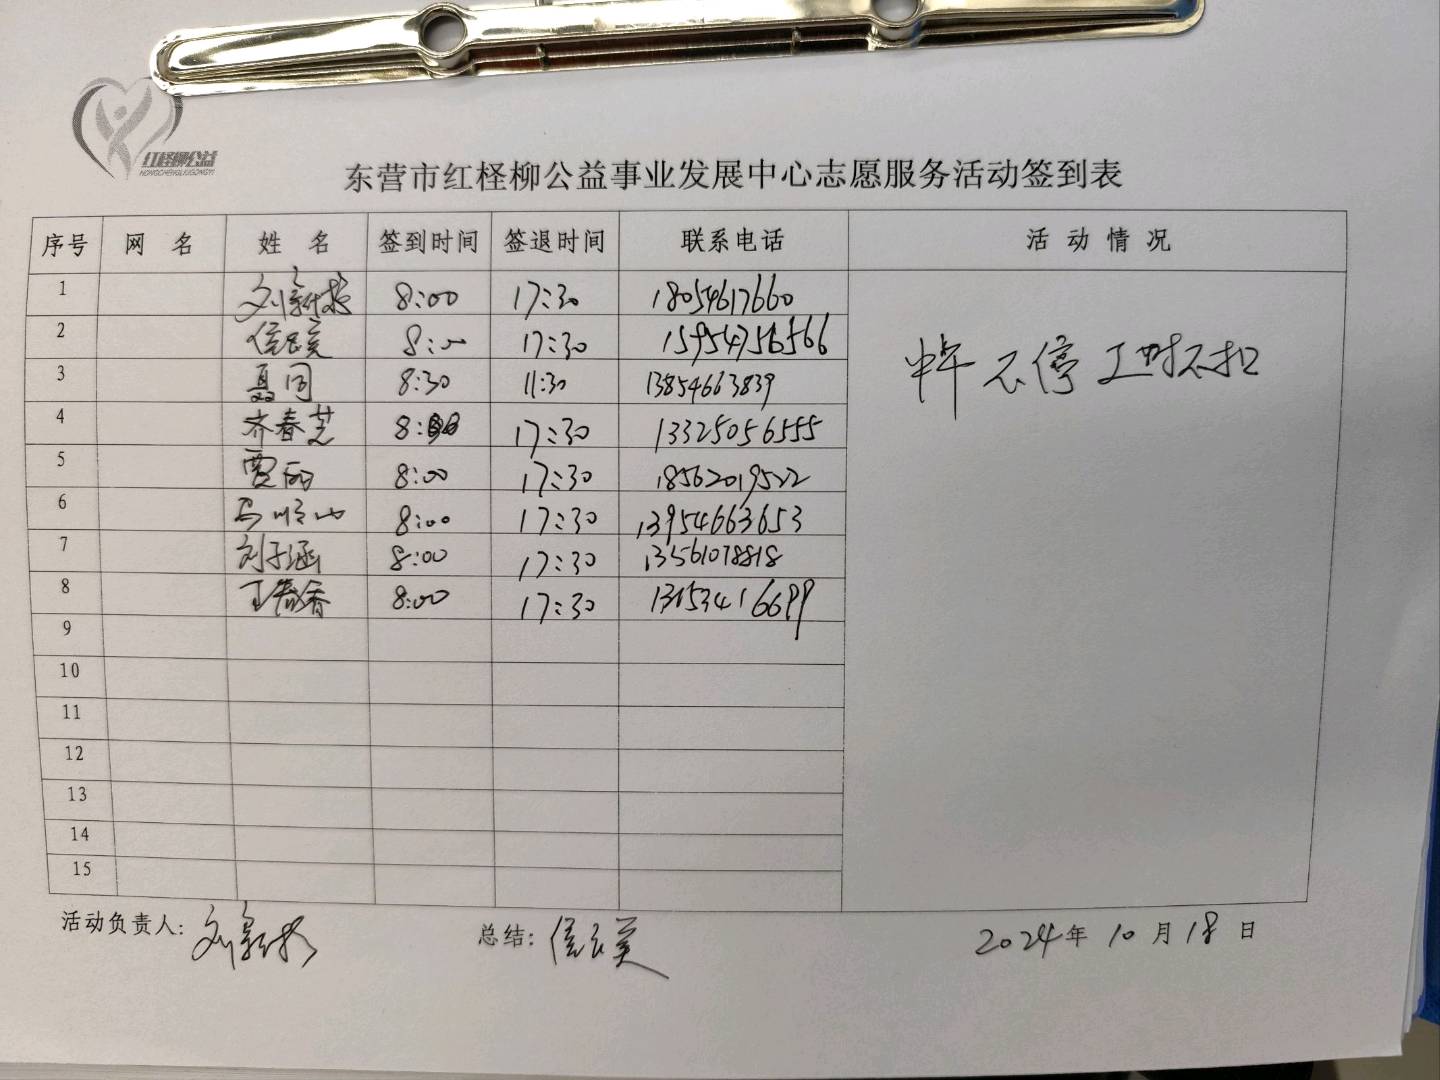 红柽柳公益
HONGCHENGLIUGONGYI
东营市红柽柳公益事业发展中心志愿服务活动签到表
序号 网 名 姓 名 签到时间 签退时间 联系电话 活 动 情 况
1 8:00 17:30 18054617660
2 8:00 17:30 15954756566
3 聂同 8:30 11:30 13854663839
4 齐春芝 8:00 17:30 13325056555
5 贾丽 8:00 17:30 18562019522
6 8:00 17:30 13954663653
7 刘子涵 8:00 17:30 13561078818
8 8:00 17:30 13153416699
中午不停 工时不扣
9
10
11
12
13
14
15
活动负责人: 总结: 2024年 10 月 18 日